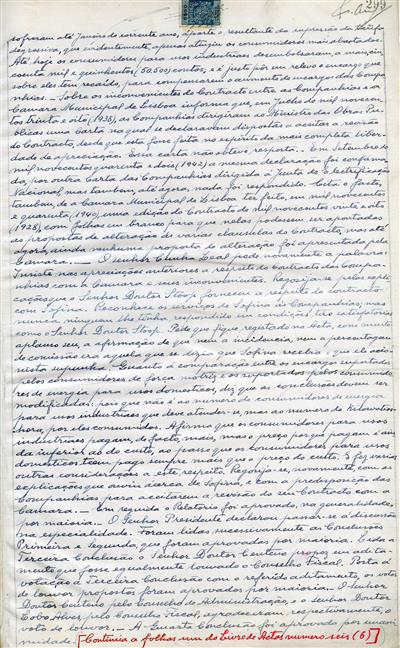 sofreram até Janeiro do corrente ano, àparte o resultante da supressão da tarifa
degressiva, que evidentemente, apenas atingiu os consumidores mais abastados.
Até hoje os consumidores para usos industriaes desembolsaram, a mais, cin-
coenta mil e quinhentos (50.500) contos, e é justo pôr em relevo o encargo que
sobre eles tem recaido, para compensarem o aumento de encargos das Compa-
nhias. — Sobre os inconvenientes do Contracto entre as Companhias e a
Camara Municipal de Lisboa informa que, em Junho de mil novecen-
tos trinta e oito (1938), as Companhias dirigiram ao Ministro das Obras Pú-
blicas uma Carta na qual se declaravam dispostas a aceitar a revisão
do Contracto, desde que esta fosse feita no espirito da mais completa liber-
dade de apreciação. Essa carta não obteve resposta. Em Setembro de
mil novecentos quarenta e dois (1942) a mesma declaração foi confirma-
da, por outra Carta das Companhias dirigida à Junta de Electrificação
Nacional, mas tambem, até agora, nada foi respondido. Cita o facto,
tambem, de a Camara Municipal de Lisboa ter feito, em mil novecentos
e quarenta (1940) uma edição do Contracto de mil novecentos vinte e oito
(1928), com folhas em branco para que nelas podessem ser apontadas
as propostas de alteração de varias clausulas do Contracto, mas até
agora, ainda nenhuma proposta de alteração foi apresentada pela
Camara. — O Senhor Cunha Leal pede novamente a palavra:
Insiste nas apreciações anteriores a respeito do Contracto das Compa-
nhias com a Camara e seus inconvenientes. Regosija-se pelas expli-
cações que o Senhor Doutor Stoop forneceu a respeito do contracto
com Sofina. Reconhece os serviços da Sofina às Companhias; mas
nunca ninguem lhe tinha respondido em condições tão satisfatorias
como o Senhor Doutor Stoop. Pede que fique registado na Acta, com muito
aplauso seu, a afirmação de que nem a incidencia, nem a percentagem
de comissão era aquela que se dizia que Sofina recebia e que ele acio-
nista supunha. Quanto à comparação entre os encargos suportados
pelos consumidores de força motriz e os suportados pelos consumido-
res de energia para usos domesticos, diz que as conclusões devem ser
modificadas, pois que não é ao numero de consumidores de energia
para usos industriaes que deve atender-se, mas ao numero de kilovatios-
hora, por eles consumidos. Afirma que os consumidores para usos
industriaes pagam, de facto, mais, mas o preço porque pagam é ain-
da inferior ao do custo, ao passo que os consumidores para usos
domesticos teem pago sempre mais que o preço do custo. E faz varias
outras considerações a este respeito. Regosija-se, novamente, com as
explicações que ouviu acêrca de Sofina, e com a predisposição das
Companhias para aceitarem a revisão do seu Contracto com a
Camara. — Em seguida o Relatorio foi aprovado, na generalidade,
por maioria. — O Senhor Presidente declarou passar-se à discussão
na especialidade. Foram lidas sucessivamente as Conclusões
Primeira e Segunda, que foram aprovadas por maioria. Lida a
Terceira Conclusão o Senhor Doutor Centeno propoz em adita-
mento que fosse egualmente louvado o Conselho Fiscal. Posta à
votação a Terceira Conclusão com o referido aditamento, os votos
de louvor propostos foram aprovados por maioria. — O Senhor
Doutor Centeno pelo Conselho de Administração, e o Senhor Doutor
Calvo Alves, pelo Conselho Fiscal, agradeceram, respectivamente, o
voto de louvor. — A Quarta Conclusão foi aprovada por unani-
midade. [Continúa a folhas um do Livro de Actas numero seis (6)]